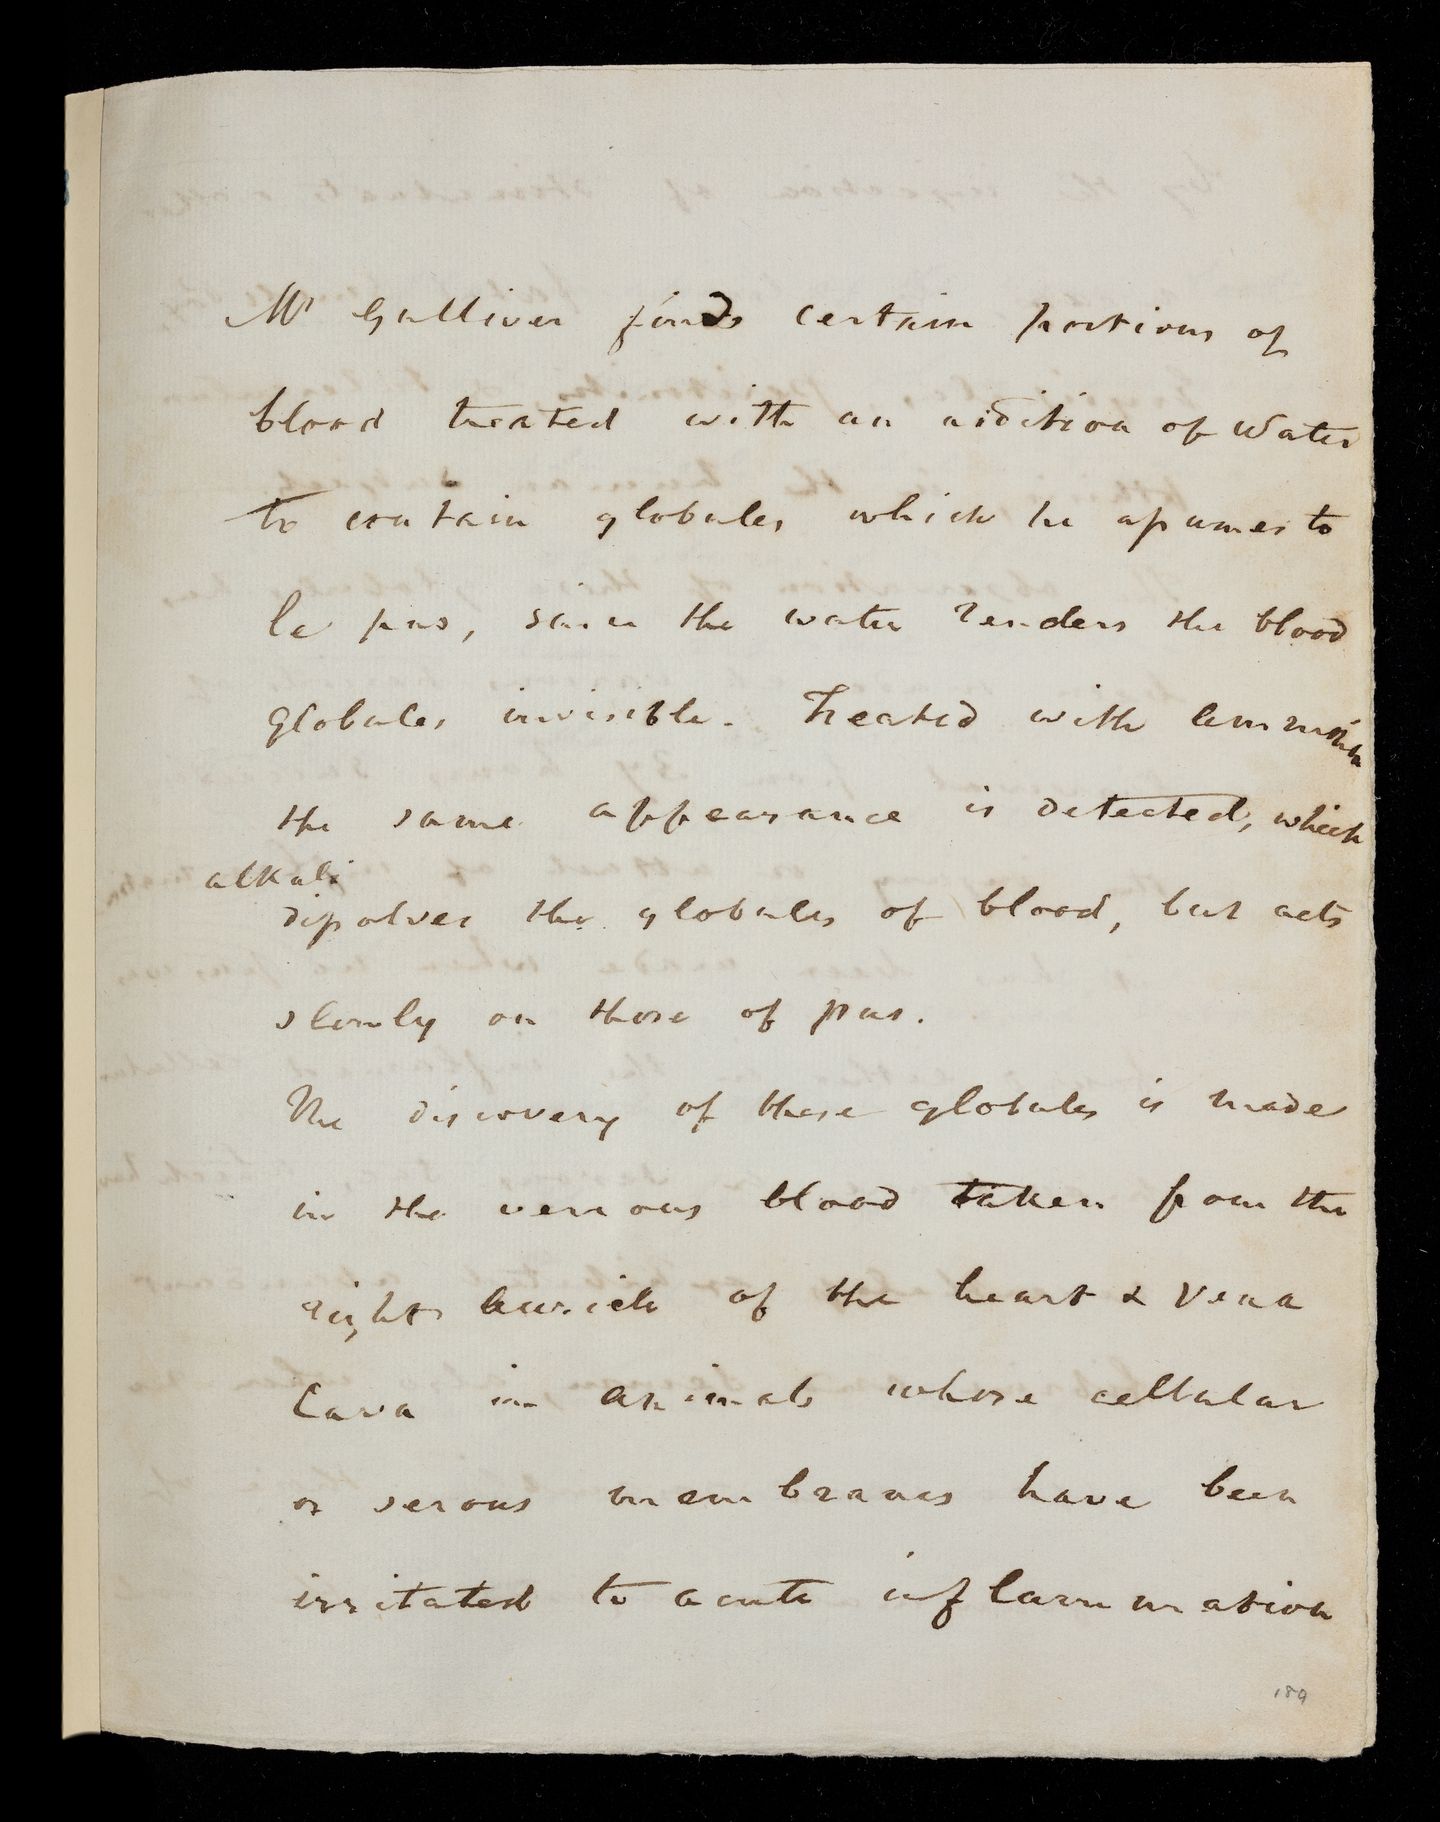 Mr Gulliver finds certain portions of
blood treated with an addition of Water
to contain globules which he assumes to
be pus, since the water renders the blood
globules invisible. Treated with Ammonia
the same appearance is detected, which
alkali
dissolves the globules of blood, but acts
slowly on those of pus.
The discovery of these globules is made
in the venous blood taken from the
right Auricle of the heart & Vena
Cava in animals whose cellular
or serous membranes have been
irritated to acute inflammation
189